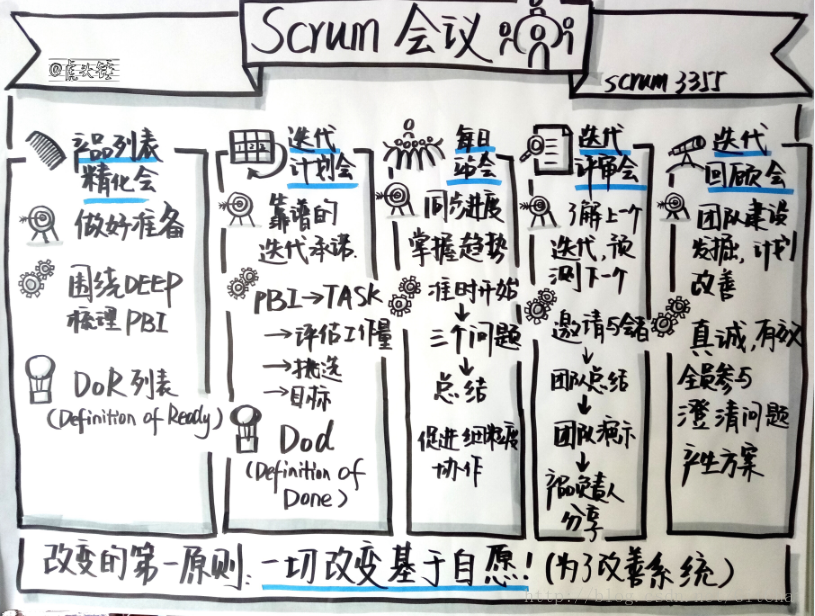 Scrum 会议
@虎头锤
scrum 3355
产品列表
精化会
做好准备
围绕DEEP
梳理PBI
DoR 列表
(Definition of Ready)
迭代
计划会
靠谱的
迭代承诺.
PBI→TASK
→评估工作量
→挑选
→目标
Dod
(Definition of
Done)
每日
站会
同步进度
掌握趋势
准时开始
↓
三个问题
↓
总结
促进细粒度
协作
迭代
评审会
了解上一个
迭代,预
测下一个
邀请与会者
↓
团队总结
↓
团队演示
↓
产品负责人
分享
迭代
回顾会
团队建设
发掘,计划
改善
真诚,有效
全员参与
澄清问题
产生方案
改变的第一原则:一切改变基于自愿!(为了改善系统)